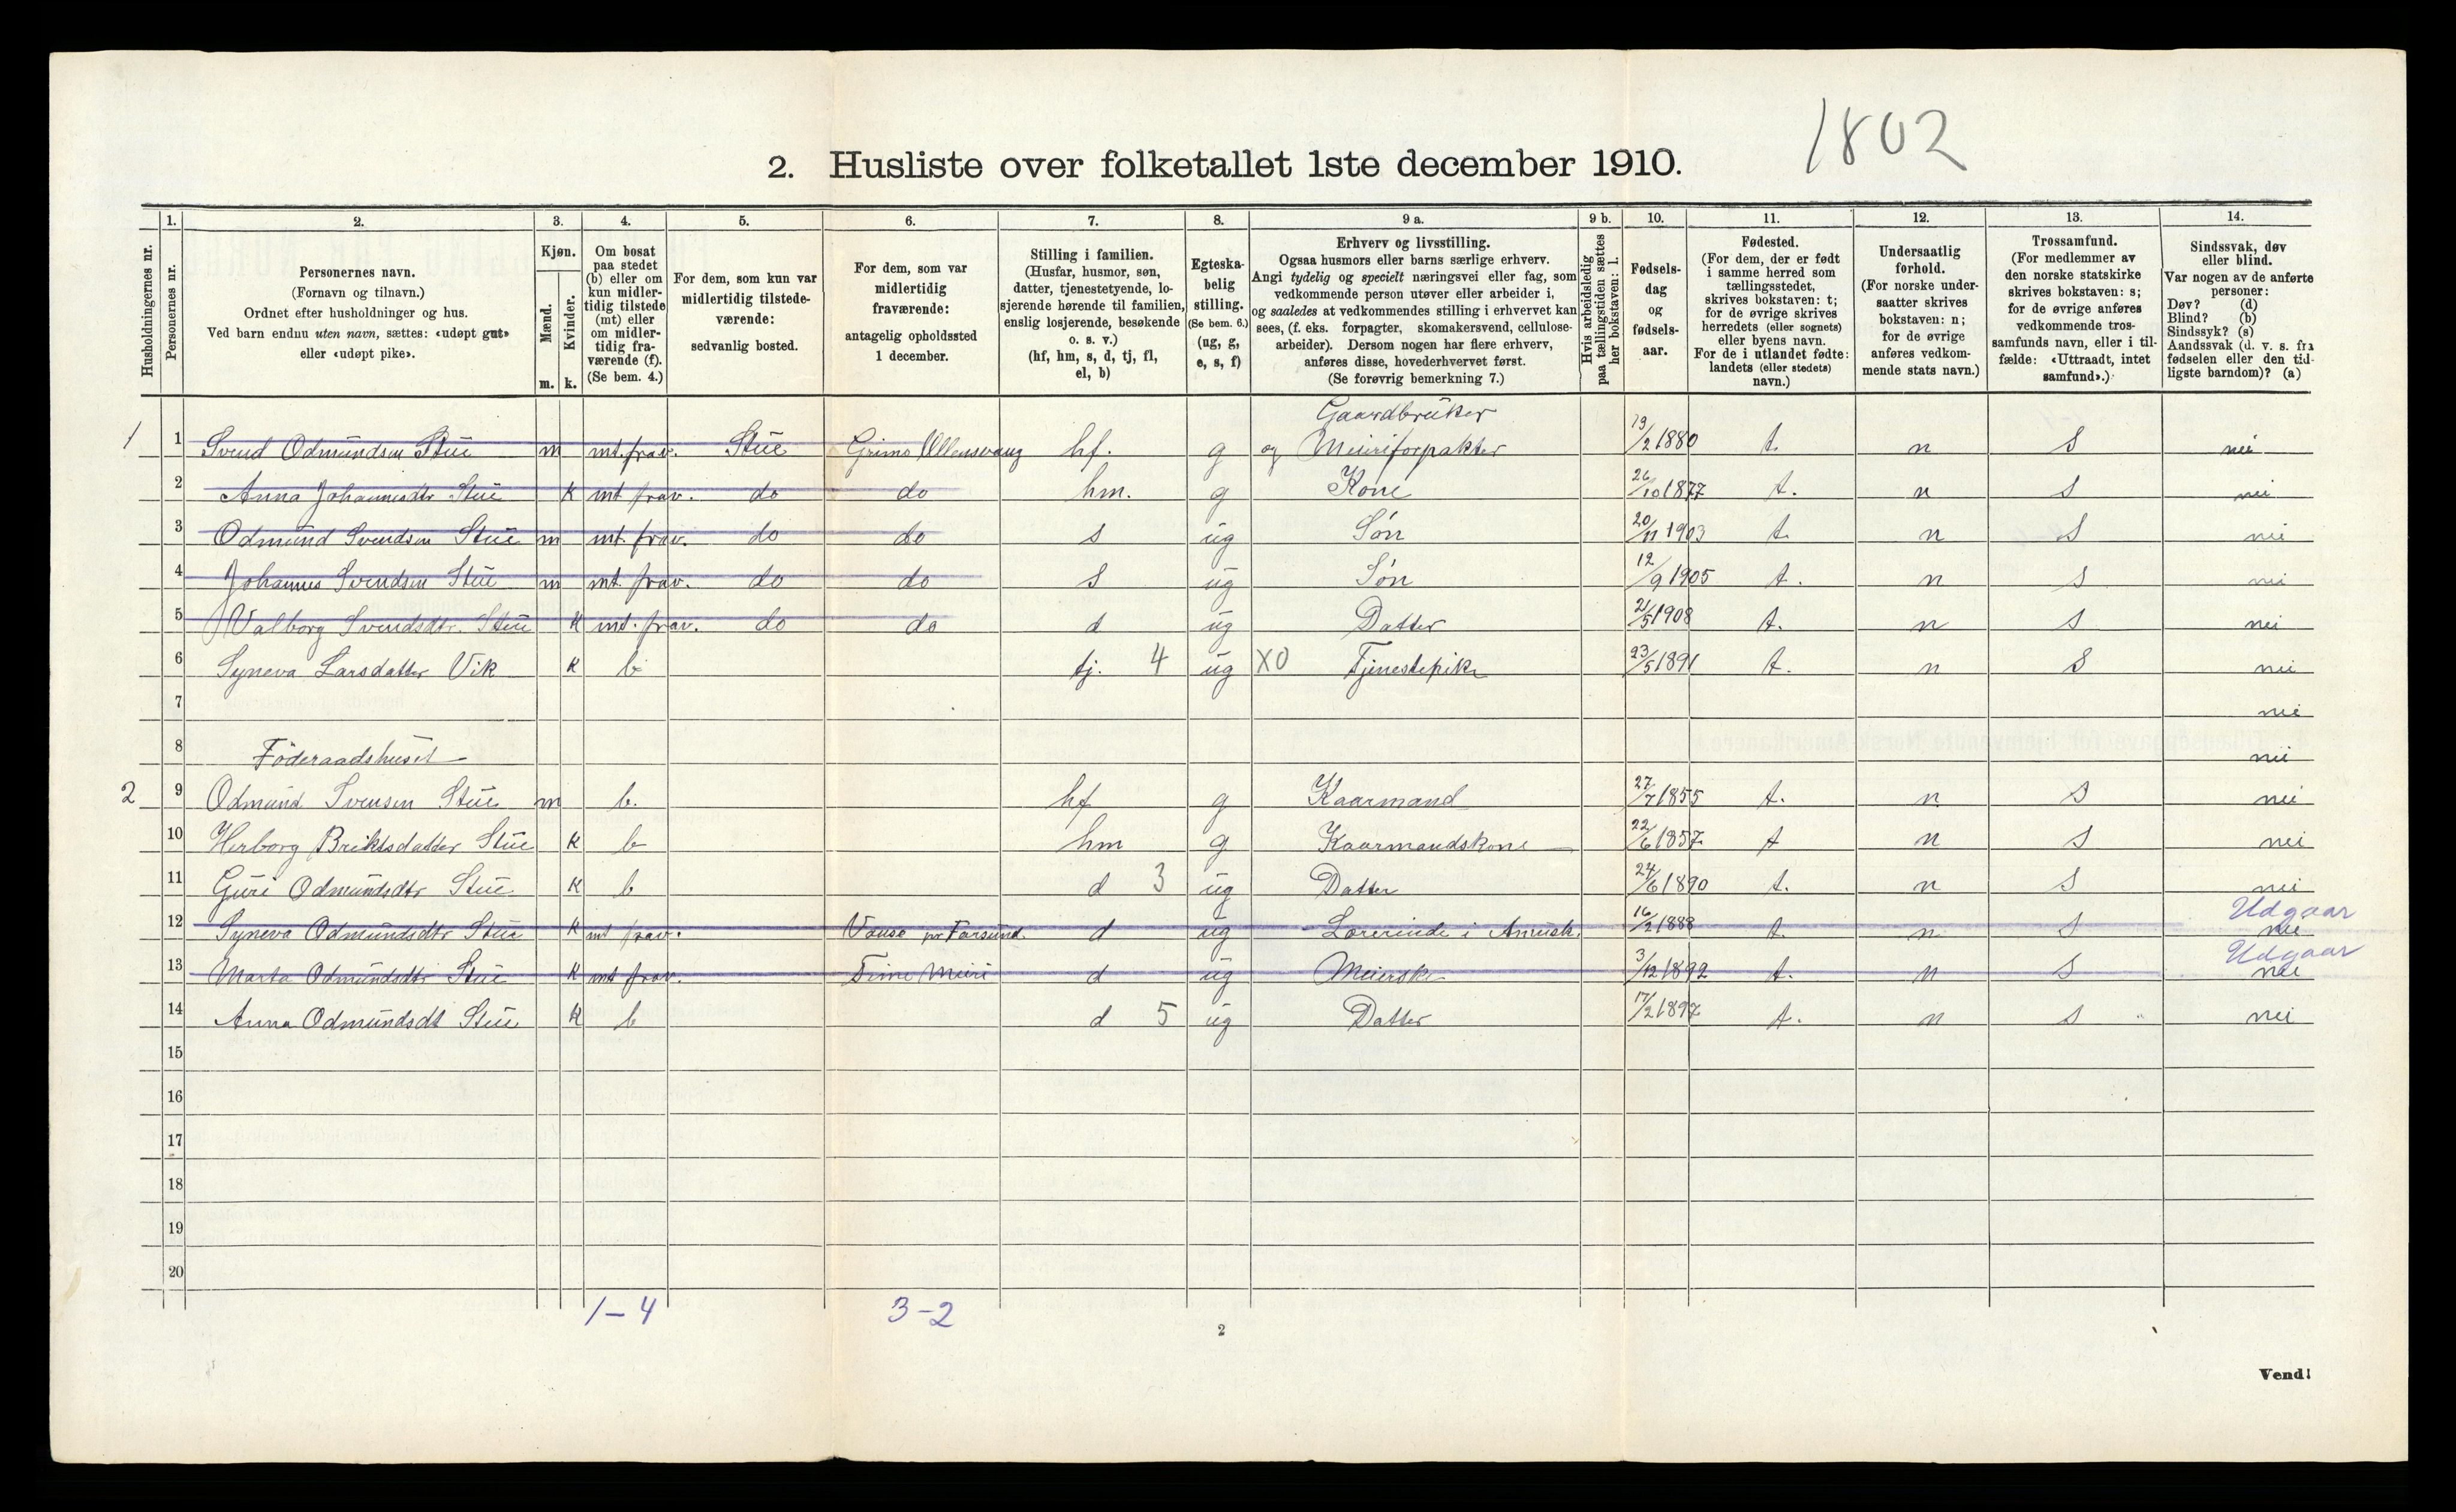 1802
2. Husliste over folketallet 1ste december 1910.
Husholdningernes nr.
1.
Personernes nr.
2.
Personernes navn.
(Fornavn og tilnavn.)
Ordnet efter husholdninger og hus.
Ved barn endnu uten navn, sættes: «udøpt gut»
eller «udøpt pike».
3.
Kjøn.
Mænd.
m.
Kvinder.
k.
4.
Om bosat
paa stedet
(b) eller om
kun midler-
tidig tilstede
(mt) eller
om midler-
tidig fra-
værende (f).
(Se bem. 4.)
5.
For dem, som kun var
midlertidig tilstede-
værende:
sedvanlig bosted.
6.
For dem, som var
midlertidig
fraværende:
antagelig opholdssted
1 december.
7.
Stilling i familien.
(Husfar, husmor, søn,
datter, tjenestetyende, lo-
sjerende hørende til familien,
enslig losjerende, besøkende
o. s. v.)
(hf, hm, s, d, tj, fl,
el, b)
8.
Egteska-
belig
stilling.
(Se bem. 6.)
(ug, g,
e, s, f)
9 a.
Erhverv og livsstilling.
Ogsaa husmors eller barns særlige erhverv.
Angi tydelig og specielt næringsvei eller fag, som
vedkommende person utøver eller arbeider i,
og saaledes at vedkommendes stilling i erhvervet kan
sees, (f. eks. forpagter, skomakersvend, cellulose-
arbeider). Dersom nogen har flere erhverv,
anføres disse, hovederhvervet først.
(Se forøvrig bemerkning 7.)
9 b.
Hvis arbeidsledig
paa tællingstiden sættes
her bokstaven: l.
10.
Fødsels-
dag
og
fødsels-
aar.
11.
Fødested.
(For dem, der er født
i samme herred som
tællingsstedet,
skrives bokstaven: t;
for de øvrige skrives
herredets (eller sognets)
eller byens navn.
For de i utlandet fødte:
landets (eller stedets)
navn.)
12.
Undersaatlig
forhold.
(For norske under-
saatter skrives
bokstaven: n;
for de øvrige
anføres vedkom-
mende stats navn.)
13.
Trossamfund.
(For medlemmer av
den norske statskirke
skrives bokstaven: s;
for de øvrige anføres
vedkommende tros-
samfunds navn, eller i til-
fælde: «Uttraadt, intet
samfund».)
14.
Sindssvak, døv
eller blind.
Var nogen av de anførte
personer:
Døv? (d)
Blind? (b)
Sindssyk? (s)
Aandssvak (d. v. s. fra
fødselen eller den tid-
ligste barndom)? (a)
Gaardbruker
1 1 Svend Odmundsen Stue m mt. frav. Stue Grimo Ullensvang hf. g og Meieriforpakter 19/2 1880 t. n S nei
2 Anna Johannesdtr Stue k mt frav. do do hm. g Kone 26/10 1877 t. n S nei
3 Odmund Svendsen Stue m mt. frav. do do s ug Søn 20/11 1903 t. n S nei
4 Johannes Svendsen Stue m mt. frav. do do s ug Søn 12/9 1905 t. n S nei
5 Valborg Svendsdtr. Stue k mt. frav. do do d ug Datter 21/5 1908 t. n S nei
6 Syneva Larsdatter Vik k b tj. 4 ug XO Tjenestepike 23/5 1891 t. n S nei
7 nei
8 Föderaadshuset nei
2 9 Odmund Svensen Stue m b. hf g Kaarmand 27/7 1855 t. n S nei
10 Herborg Briktsdatter Stue k b hm g Kaarmandskone 22/6 1857 t n S nei
11 Guri Odmundsdtr Stue k b d 3 ug Datter 24/6 1890 t. n S nei
Udgaar
12 Syneva Odmundsdtr Stue k mt frav. Vanse pr Farsund d ug Lærerinde i 16/2 1888 t. n S nei
Udgaar
13 Marta Odmundsdtr Stue k mt frav. Time Meieri d ug Meierske 3/12 1892 t. n S nei
14 Anna Odmundsdt Stue k b d 5 ug Datter 17/2 1897 t. n S nei
15
16
17
18
19
20
1-4 3-2
2
Vend!